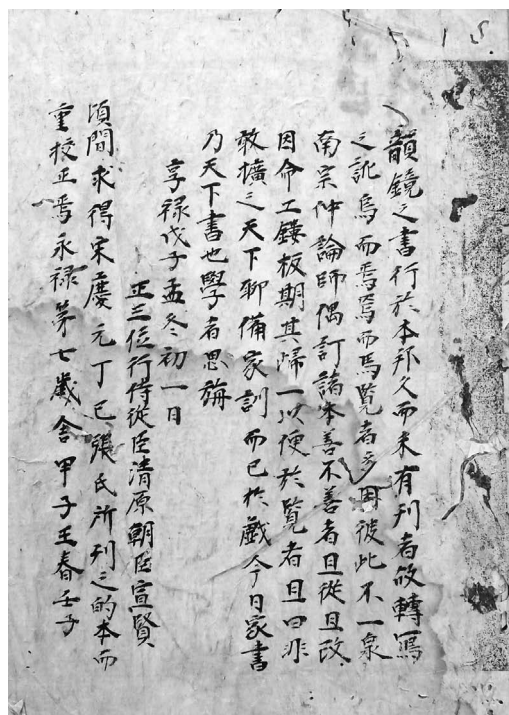 韻鏡之書行於本邦久而未有刊者故轉寫
之訛烏而焉焉而馬覧者多困彼此不一泉
南宗仲論師偶訂諸本善不善者且從且改
因命工鏤板期其歸一以便於覧者且曰非
敢擴之天下聊備家訓而已於戲今日家書
乃天下書也學者思旃
享禄戊子孟冬初一日
正三位行侍從臣清原朝臣宣賢
頃間求得宋慶元丁巳張氏所刊之的本而
重校正焉永禄第七歲舎甲子王春壬子